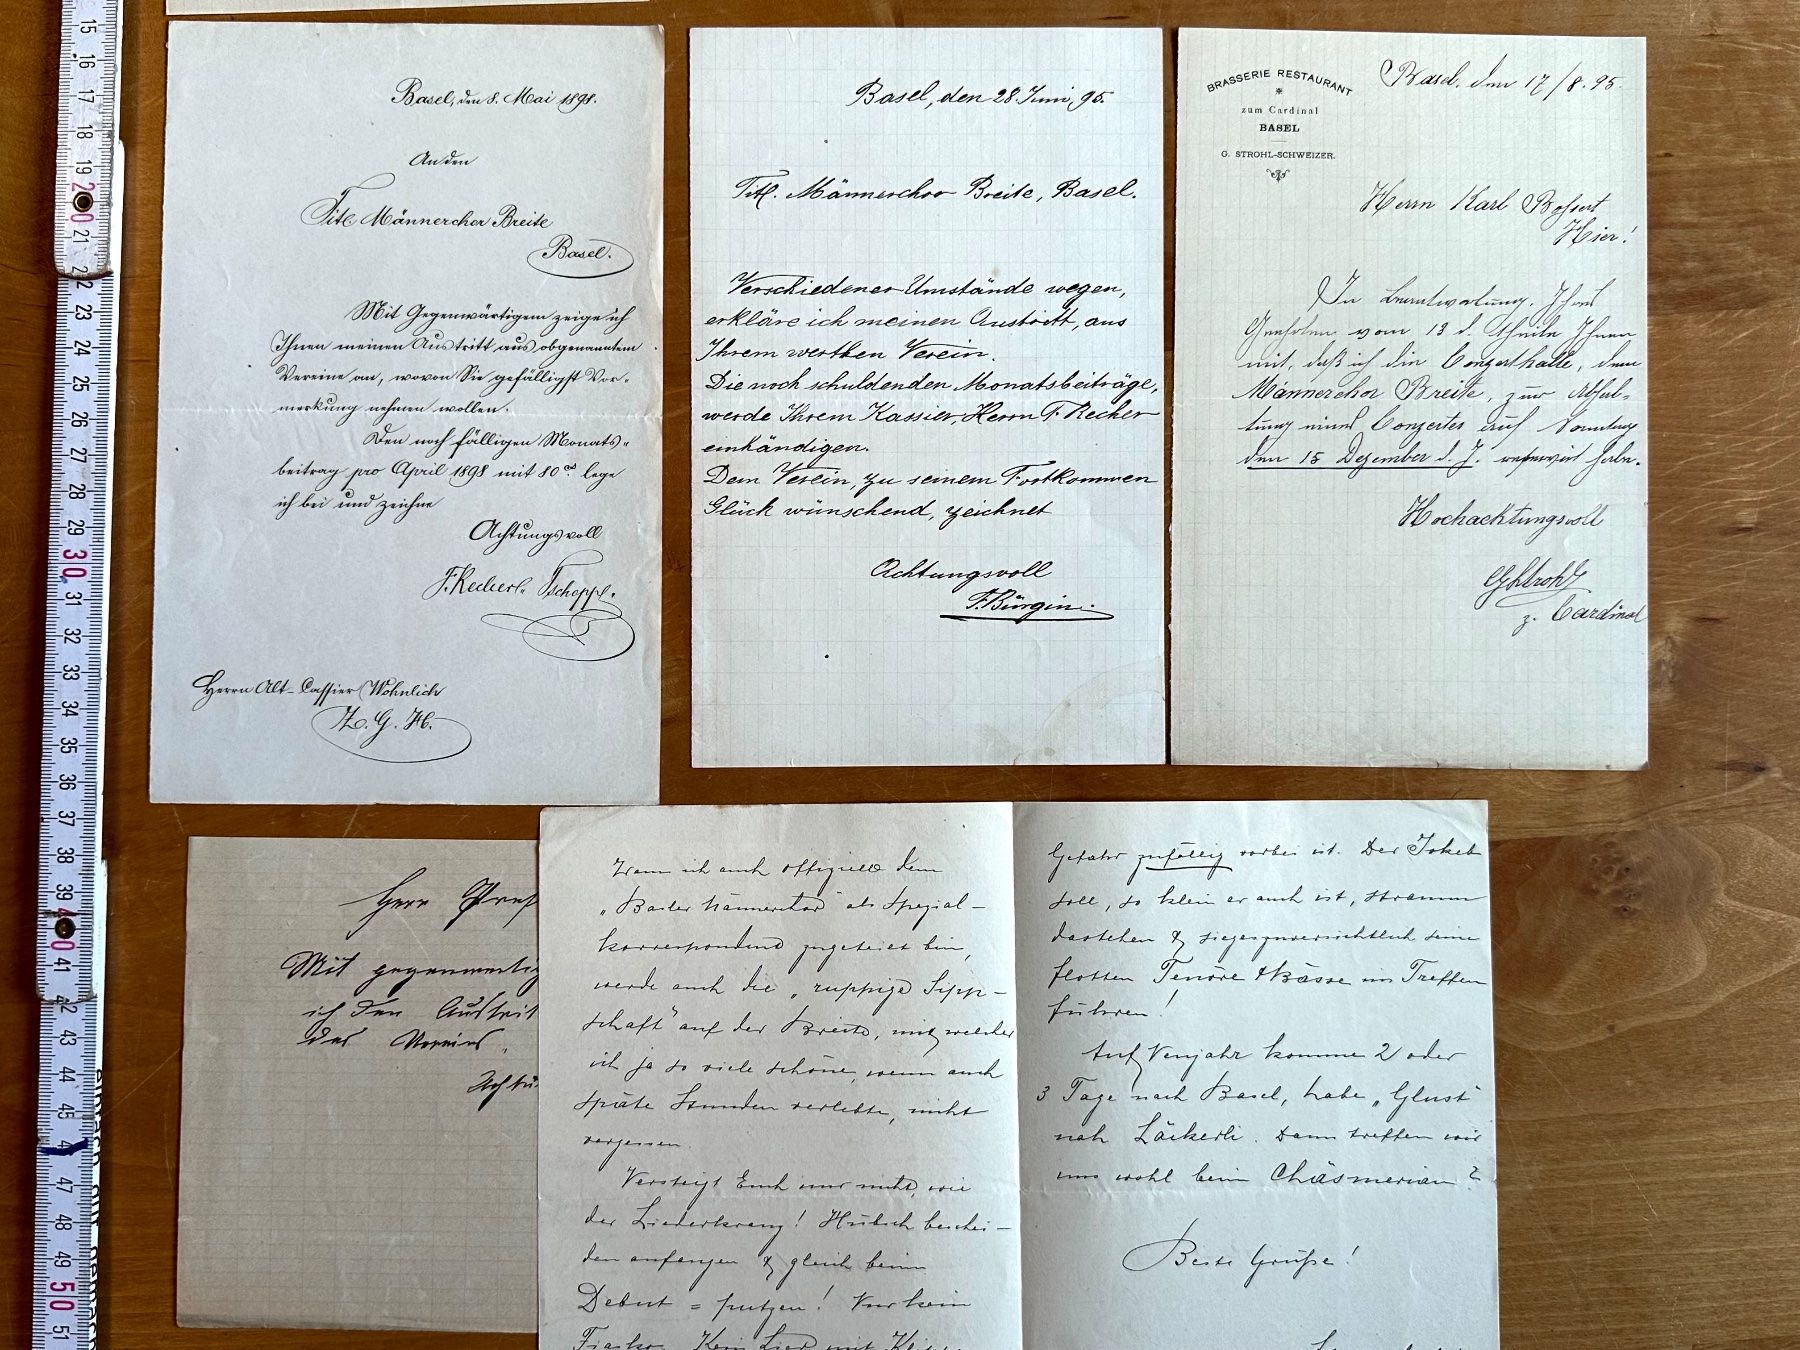 Basel, den 8. Mai 1898.
An den
Titl. Männerchor Breite
Basel.
Mit Gegenwärtigem zeige ich
Ihnen meinen Austritt aus obgenanntem
Vereine an, wovon Sie gefälligst Vor-
merkung nehmen wollen.
Den noch fälligen Monats-
beitrag pro April 1898 mit 80 cs. lege
ich bei und zeichne
Achtungsvoll
F. Recher-Tschopp.
Herrn Alt-Cassier Wohnlich
Z. G. H.
Basel, den 28. Juni 95.
Titl. Männerchor Breite, Basel.
Verschiedener Umstände wegen,
erkläre ich meinen Austritt, aus
Ihrem werthen Verein.
Die noch schuldenden Monatsbeiträge,
werde Ihrem Kassier, Herrn F. Recher
einhändigen.
Dem Verein, zu seinem Fortkommen
Glück wünschend, zeichnet
Achtungsvoll
F. Bürgin.
BRASSERIE RESTAURANT
zum Cardinal
BASEL
G. STROHL-SCHWEIZER.
Basel, den 17/8. 95.
Herrn Karl Bossert
Hier!
In Beantwortung, Ihres
Geehrten vom 13 d. theile Ihnen
mit, daß ich die Conzerthalle, dem
Männerchor Breite, zur Abhal-
tung eines Conzertes auf Sonntag
den 15 Dezember d. J. reserviert habe.
Hochachtungsvoll
GStrohl
z. Cardinal
Herr
Mit gegenwertig
ich den Austrit
des Vereins,
Achtu
Wenn ich auch offiziell dem
„Basler Männerchor" als Spezial-
korrespondent zugeteilt bin,
werde auch die „ruppige Sipp-
schaft" auf der Breite, mit welcher
ich ja so viele schöne, wenn auch
späte Stunden verlebte, nicht
vergessen.
Versteigt Euch nur nicht, wie
der Liederkranz! Hübsch beschei-
den anfangen & gleich beim
Debut = putzen! Nur kein
Fiasko. Kein Lied mit
Gefahr zufällig vorbei ist. Der Jokeb
soll, so klein er auch ist, stramm
dastehen & siegeszuversichtlich seine
flotten Tenöre & Bässe ins Treffen
führen!
Auf Neujahr komme 2 oder
3 Tage nach Basel, habe „Glust"
nach Läckerli. Dann treffen wir
uns wohl beim Chäsmerian?
Beste Grüße!
15
16
17
18
19
20
21
22
23
24
25
26
27
28
29
30
31
32
33
34
35
36
37
38
39
40
41
42
43
44
45
47
48
49
50
51